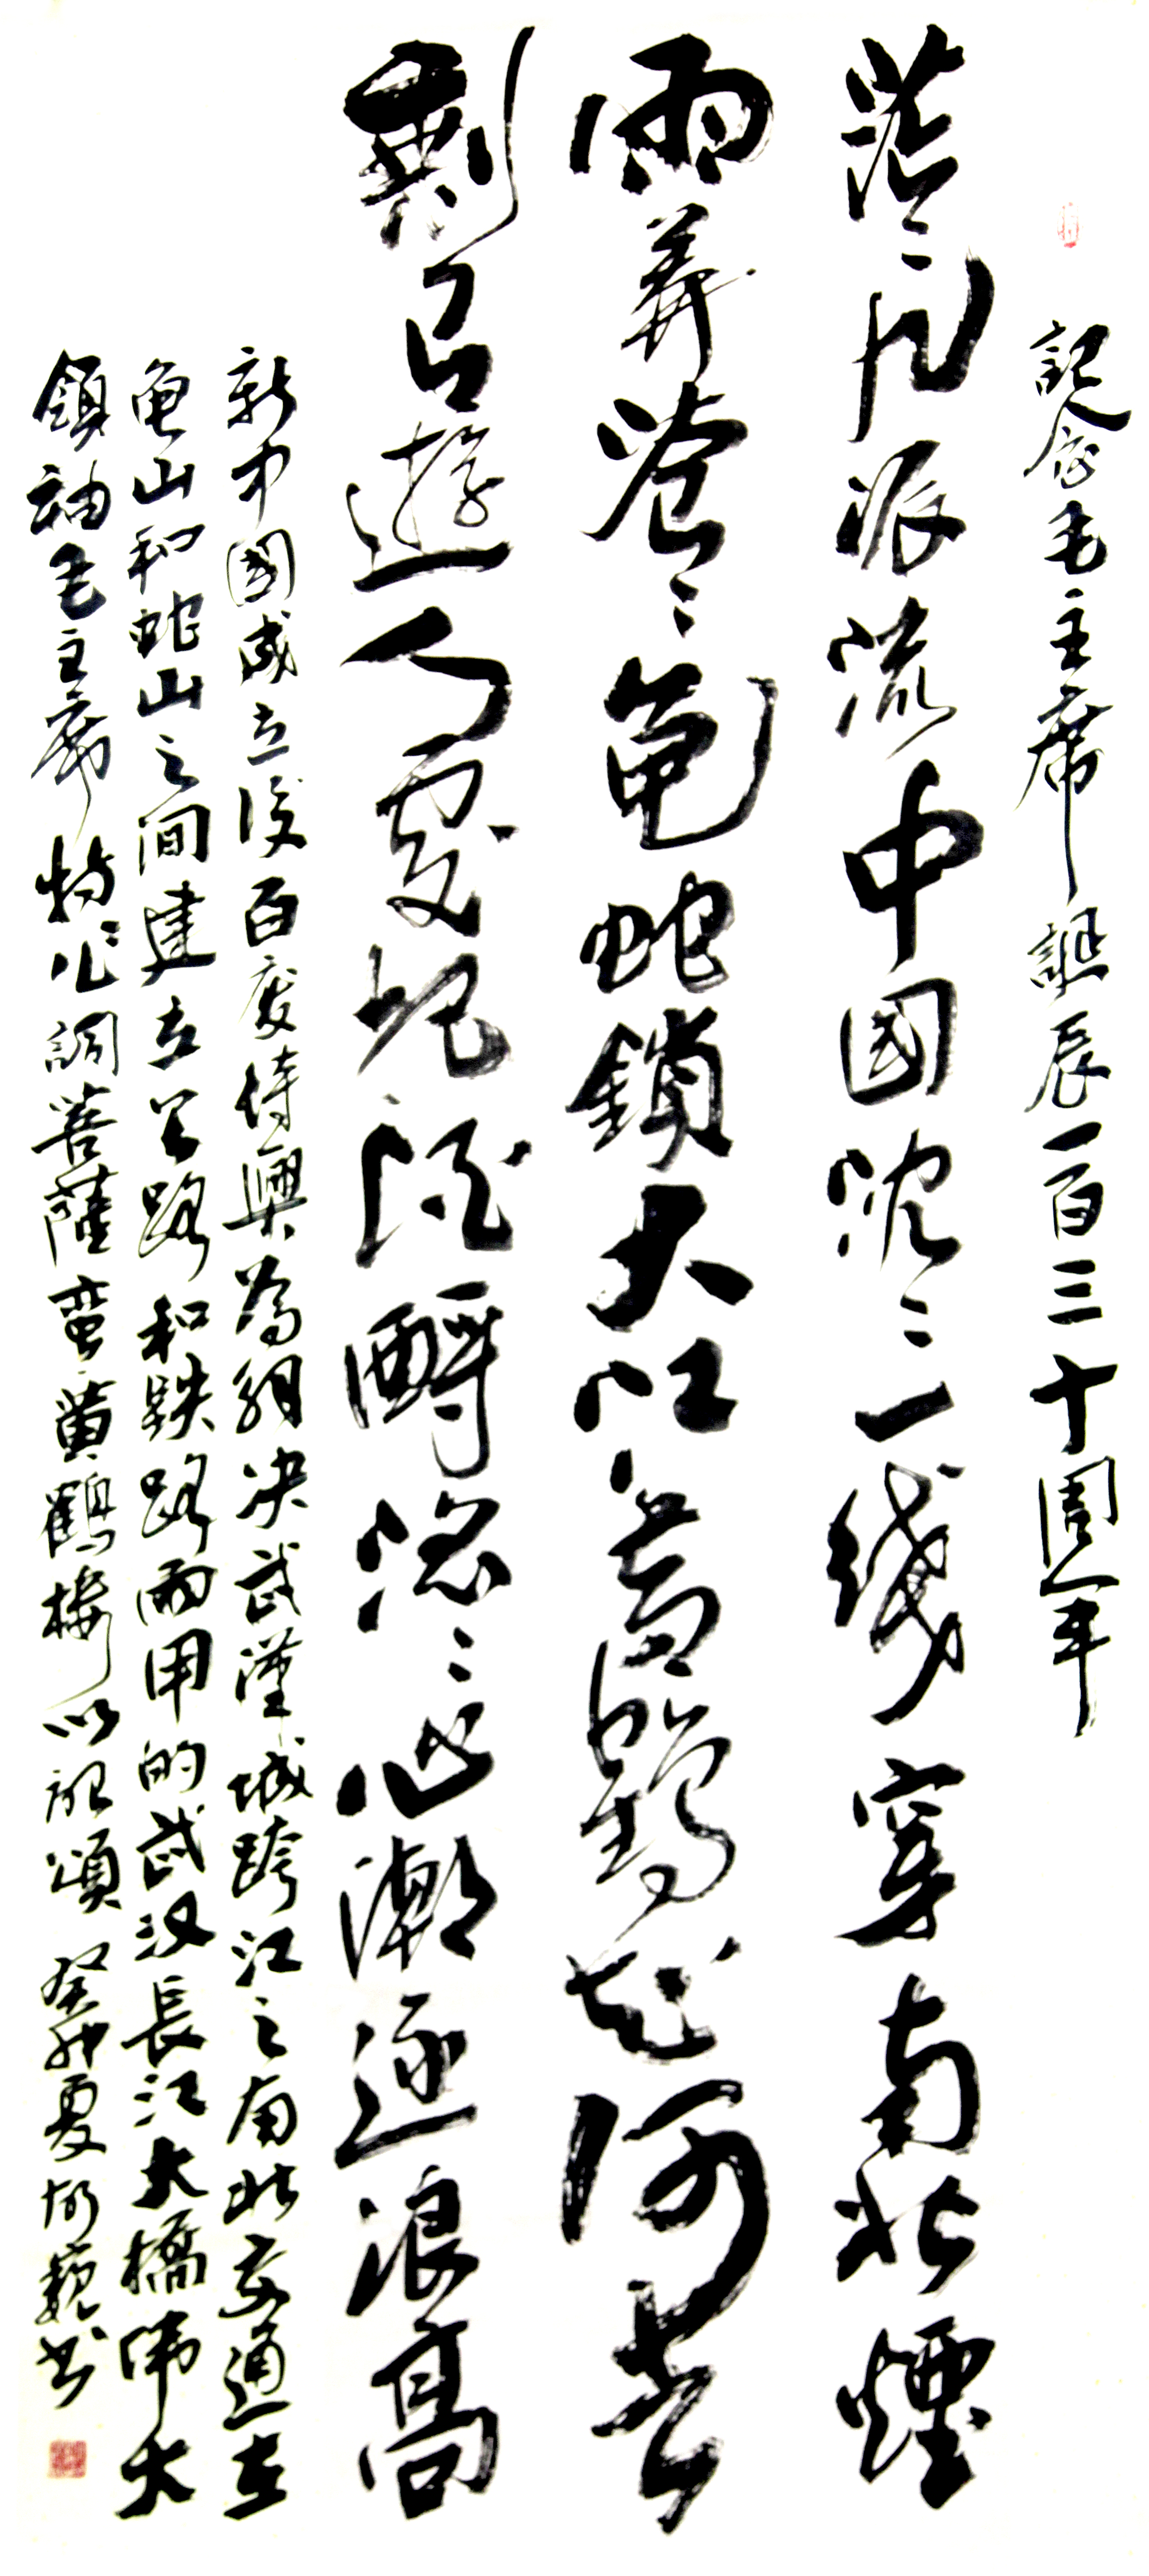 記念毛主席誕辰一百三十周年
茫々九派流中國沈々一綫穿南北煙
雨莽蒼々龜蛇鎖大江黃鶴知何去
剩有遊人處把酒酹滔々心潮逐浪高
新中國成立後百廢待興為解决武漢城跨江之南北交通在
龜山和蛇山之間建立公路和鉄路兩用的武汉長江大橋偉大
領袖毛主席特作詞菩薩蛮黃鶴樓以記頌癸卯夏巍书